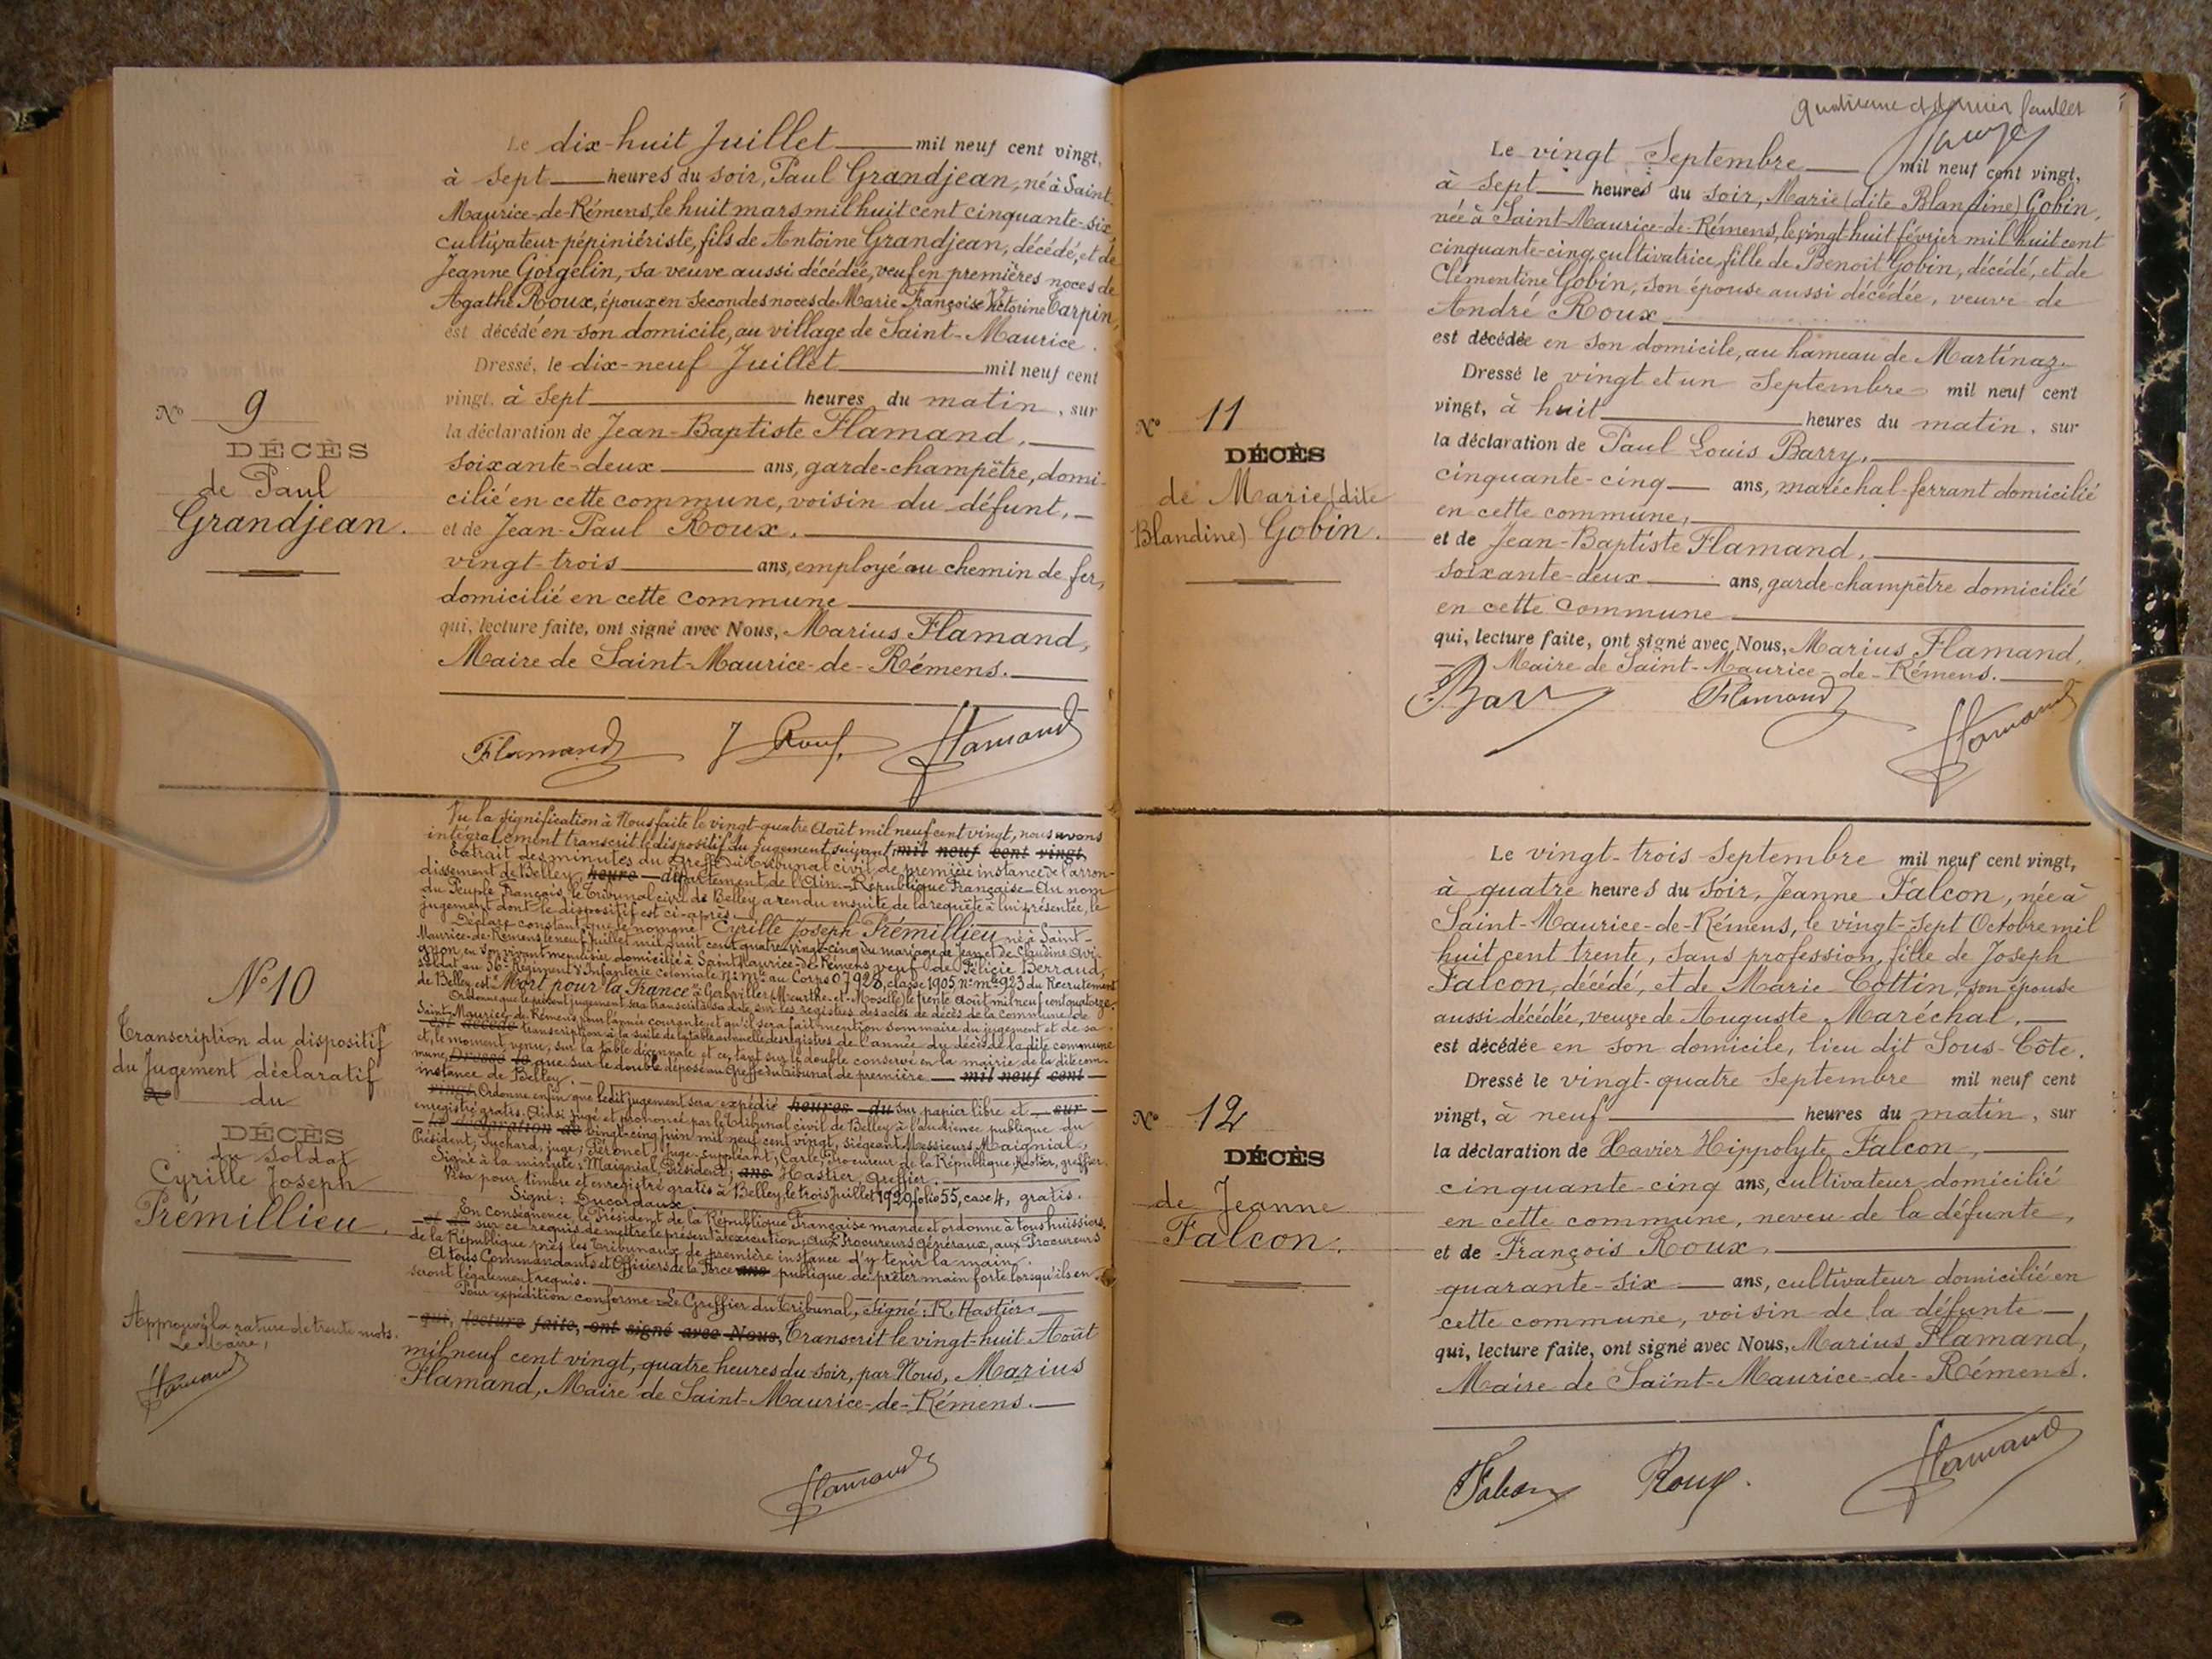 Le dix-huit Juillet mil neuf cent vingt,
à Sept heures du soir, Paul Grandjean, né à Saint-
Maurice-de-Rémens, le huit mars mil huit cent cinquante-six
cultivateur-pépiniériste, fils de Antoine Grandjean, décédé, et de
Jeanne Gorgelin, sa veuve aussi décédée, veuf en premières noces de
Agathe Roux, époux en secondes noces de Marie Françoise Victorine Tarpin,
est décédé en son domicile, au village de Saint-Maurice.
Dressé, le dix-neuf Juillet mil neuf cent
vingt, à Sept heures du matin, sur
la déclaration de Jean-Baptiste Flamand,
soixante-deux ans, garde-champêtre, domi-
cilié en cette commune, voisin du défunt,
et de Jean-Paul Roux,
vingt-trois ans, employé au chemin de fer,
domicilié en cette commune
qui, lecture faite, ont signé avec Nous, Marius Flamand,
Maire de Saint-Maurice-de-Rémens.
N° 9
DÉCÈS
de Paul
Grandjean.
Flamand J Roux Flamand
Vu la signification à Nous faite le vingt-quatre Août mil neuf cent vingt, nous avons
intégralement transcrit le dispositif du jugement suivant, mil neuf cent vingt,
Extrait des minutes du Greffe du Tribunal civil de première instance de l'arron-
dissement de Belley, heure département de l'Ain. République Française. Au nom
du Peuple Français, le Tribunal civil de Belley a rendu ensuite de la requête à lui présentée, le
jugement dont le dispositif est ci-après.
Déclare constant que le nommé Cyrille Joseph Prémillieu né à Saint-
Maurice-de-Rémens le neuf Juillet mil huit cent quatre-vingt-cinq du mariage de Jean et de Claudine Avi-
gnon, en son vivant menuisier domicilié à Saint-Maurice-de-Rémens veuf de Félicie Berraud,
soldat au 36e Régiment d'Infanterie coloniale n° mle au Corps 07928, classe 1905 n° mle 923 du Recrutement
de Belley, est "Mort pour la France" à Gerbéviller (Meurthe-et-Moselle) le trente Août mil neuf cent quatorze.
Ordonne que le présent jugement sera transcrit à sa date sur les registres des actes de décès de la commune de
Saint-Maurice-de-Rémens pour l'année courante, et qu'il sera fait mention sommaire du jugement et de sa
est décédé transcription à la suite de la table annuelle des registres de l'année du décès de la dite commune
et, le moment venu, sur la table décennale et ce, tant sur le double conservé en la mairie de la dite com-
mune, Dressé le que sur le double déposé au Greffe du tribunal de première mil neuf cent
instance de Belley.
vingt Ordonne enfin que ledit jugement sera expédié heures du sur papier libre et sur
enregistré gratis. Ainsi jugé et prononcé par le Tribunal civil de Belley à l'audience publique du
la déclaration de vingt-cinq Juin mil neuf cent vingt, siégeant Messieurs Maignial,
Président, Suchard, juge, Péronet, Juge-suppléant, Carle, Procureur de la République, Hastier, greffier.
Signé à la minute: Maignial, Président; ans Hastier, Greffier.
Visa pour timbre et enregistré gratis à Belley, le trois Juillet 1920 folio 55, case 4, gratis.
Signé: Ducordaux
En conséquence, le Président de la République Française mande et ordonne à tous huissiers
et de sur ce requis de mettre le présent à exécution; aux Procureurs généraux, aux Procureurs
de la République près les Tribunaux de première instance d'y tenir la main.
A tous Commandants et Officiers de la Force ans publique de prêter main forte lorsqu'ils en
seront légalement requis.
Pour expédition conforme: Le Greffier du Tribunal, Signé: R. Hastier
qui, lecture faite, ont signé avec Nous, Transcrit le vingt-huit Août
mil neuf cent vingt, quatre heures du soir, par Nous, Marius
Flamand, Maire de Saint-Maurice-de-Rémens.
N° 10
Transcription du dispositif
du Jugement déclaratif
N° du
DÉCÈS
du soldat
Cyrille Joseph
Prémillieu.
Approuvé la rature de trente mots.
Le Maire,
Flamand
Flamand
Quatrième et dernier feuillet
Le vingt Septembre mil neuf cent vingt,
à Sept heures du soir, Marie (dite Blandine) Gobin,
née à Saint-Maurice-de-Rémens, le vingt-huit février mil huit cent
cinquante-cinq, cultivatrice, fille de Benoît Gobin, décédé, et de
Clémentine Gobin, son épouse aussi décédée, veuve de
André Roux
est décédée en son domicile, au hameau de Martinaz.
Dressé le vingt et un Septembre mil neuf cent
vingt, à huit heures du matin, sur
la déclaration de Paul Louis Barry,
cinquante-cinq ans, maréchal-ferrant domicilié
en cette commune,
et de Jean-Baptiste Flamand,
soixante-deux ans, garde-champêtre domicilié
en cette commune
qui, lecture faite, ont signé avec Nous, Marius Flamand,
Maire de Saint-Maurice-de-Rémens.
N° 11
DÉCÈS
de Marie (dite
Blandine) Gobin.
Flamand Flamand
Le vingt-trois Septembre mil neuf cent vingt,
à quatre heures du soir, Jeanne Falcon, née à
Saint-Maurice-de-Rémens, le vingt-sept Octobre mil
huit cent trente, sans profession, fille de Joseph
Falcon, décédé, et de Marie Cottin, son épouse
aussi décédée, veuve de Auguste Maréchal,
est décédée en son domicile, lieu dit Sous-Côte.
Dressé le vingt-quatre Septembre mil neuf cent
vingt, à neuf heures du matin, sur
la déclaration de Xavier Hippolyte Falcon,
cinquante-cinq ans, cultivateur domicilié
en cette commune, neveu de la défunte,
et de François Roux,
quarante-six ans, cultivateur domicilié en
cette commune, voisin de la défunte
qui, lecture faite, ont signé avec Nous, Marius Flamand,
Maire de Saint-Maurice-de-Rémens.
N° 12
DÉCÈS
de Jeanne
Falcon.
Falcon Roux. Flamand